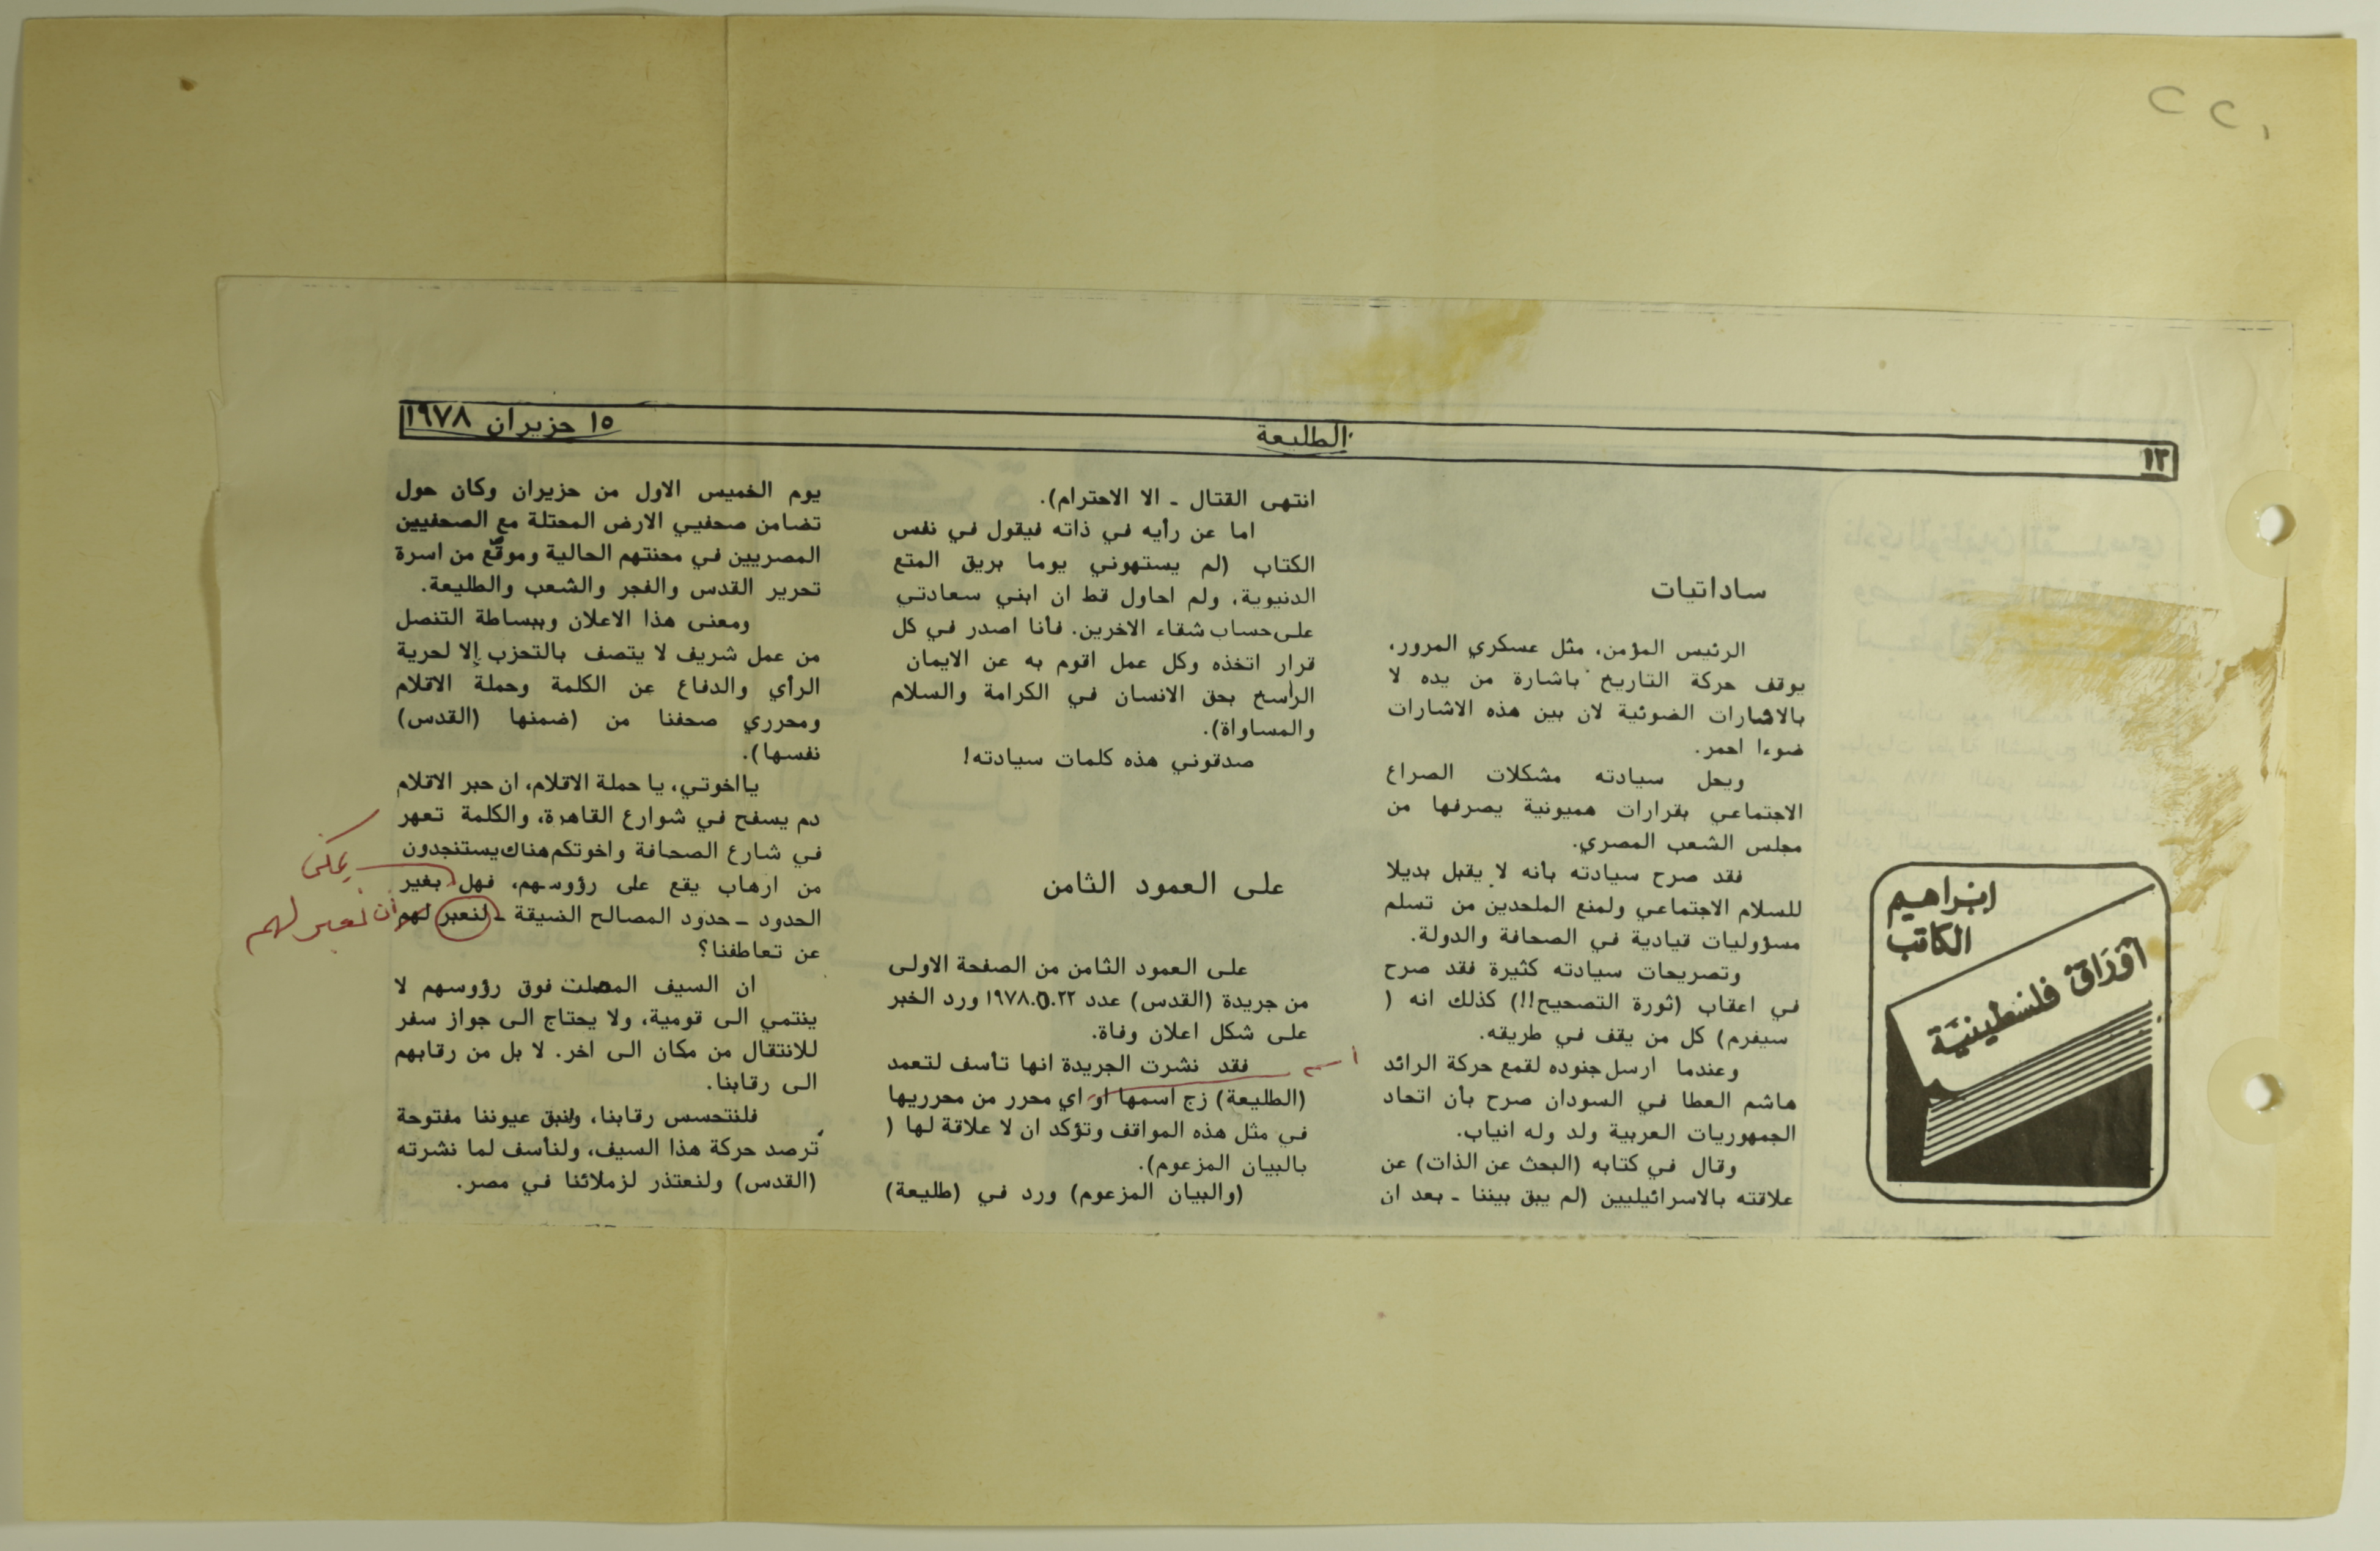 ١٢
الطليعة
١٥ حزيران ١٩٧٨
ابراهيم
الكاتب
أوراق فلسطينية
ساداتيات
الرئيس المؤمن، مثل عسكري المرور،
يوقف حركة التاريخ باشارة من يده لا
بالاشارات الضوئية لان بين هذه الاشارات
ضوءا احمر.
ويحل سيادته مشكلات الصراع
الاجتماعي بقرارات هميونية يصرفها من
مجلس الشعب المصري.
فقد صرح سيادته بأنه لا يقبل بديلا
للسلام الاجتماعي ولمنع الملحدين من تسلم
مسؤوليات قيادية في الصحافة والدولة.
وتصريحات سيادته كثيرة فقد صرح
في اعقاب (ثورة التصحيح!!) كذلك انه (
سيفرم) كل من يقف في طريقه.
وعندما ارسل جنوده لقمع حركة الرائد
هاشم العطا في السودان صرح بأن اتحاد
الجمهوريات العربية ولد وله انياب.
وقال في كتابه (البحث عن الذات) عن
علاقته بالاسرائيليين (لم يبق بيننا ـ بعد ان
انتهى القتال ـ الا الاحترام).
اما عن رأيه في ذاته فيقول في نفس
الكتاب (لم يستهوني يوما بريق المتع
الدنيوية، ولم احاول قط ان ابني سعادتي
على حساب شقاء الاخرين. فأنا اصدر في كل
قرار اتخذه وكل عمل اقوم به عن الايمان
الراسخ بحق الانسان في الكرامة والسلام
والمساواة).
صدقوني هذه كلمات سيادته!
على العمود الثامن
على العمود الثامن من الصفحة الاولى
من جريدة (القدس) عدد ١٩٧٨.٥.٢٢ ورد الخبر
على شكل اعلان وفاة.
فقد نشرت الجريدة انها تأسف لتعمد
(الطليعة) زج اسمها او اي محرر من محرريها
في مثل هذه المواقف وتؤكد ان لا علاقة لها (
بالبيان المزعوم).
(والبيان المزعوم) ورد في (طليعة)
يوم الخميس الاول من حزيران وكان حول
تضامن صحفيي الارض المحتلة مع الصحفيين
المصريين في محنتهم الحالية وموقع من اسرة
تحرير القدس والفجر والشعب والطليعة.
ومعنى هذا الاعلان وببساطة التنصل
من عمل شريف لا يتصف بالتحزب إلا لحرية
الرأي والدفاع عن الكلمة وحملة الاقلام
ومحرري صحفنا من (ضمنها (القدس)
نفسها).
يااخوتي، يا حملة الاقلام، ان حبر الاقلام
دم يسفح في شوارع القاهرة، والكلمة تعهر
في شارع الصحافة واخوتكم هناك يستنجدون
من ارهاب يقع على رؤوسهم، فهل بغير
الحدود ـ حدود المصالح الضيقة ـ لنعبر لهم
عن تعاطفنا؟
يمكن
أن نعبر لهم
ان السيف المصلت فوق رؤوسهم لا
ينتمي الى قومية، ولا يحتاج الى جواز سفر
للانتقال من مكان الى اخر. لا بل من رقابهم
الى رقابنا.
فلنتحسس رقابنا، ولنبق عيوننا مفتوحة
ترصد حركة هذا السيف، ولنأسف لما نشرته
(القدس) ولنعتذر لزملائنا في مصر.